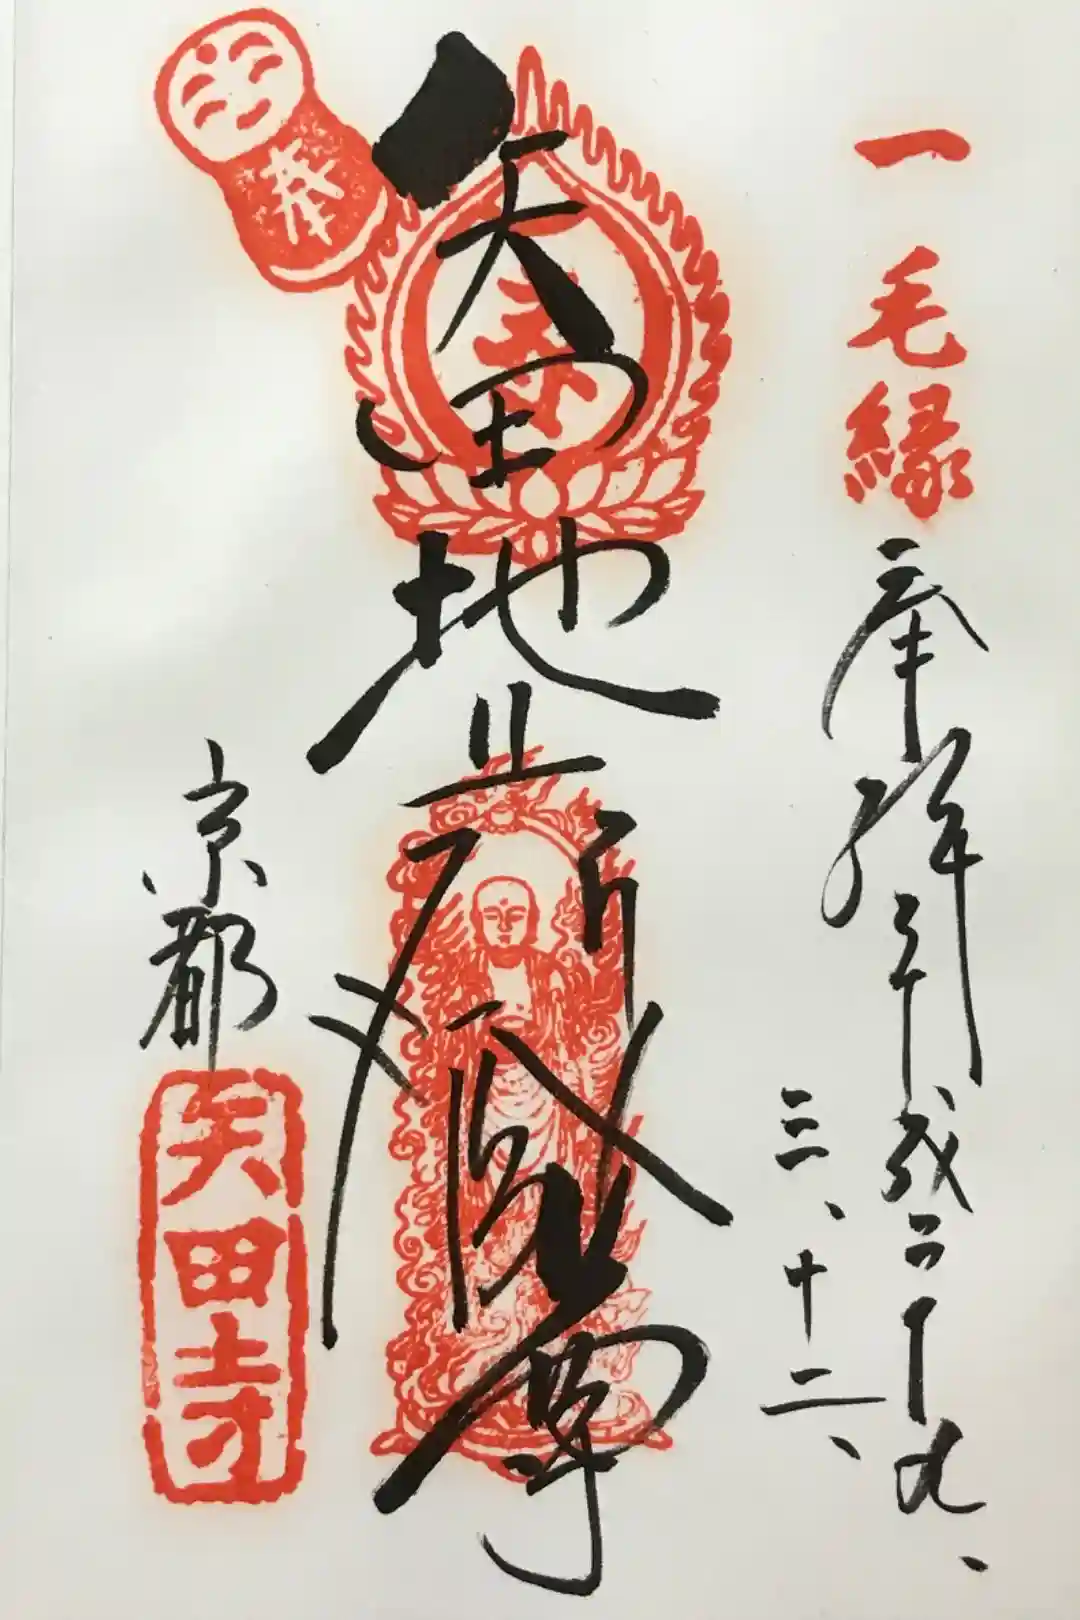 一毛縁
奉拝 平成二十九、
三、十二、
奉
矢田地蔵尊
京都
矢田寺